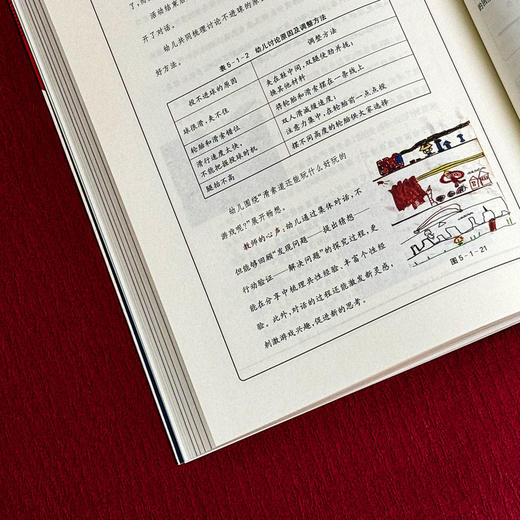 活动结束后
开了对话。
幼儿共同梳理讨论不进球的原
好方法。
表5-1-2 幼儿讨论原因及调整方法
投不进球的原因 调整方法
球很滑,夹不住 夹在腿中间,双腿使劲并拢;
换其他材料
轮胎和滑索错位 将轮胎和滑索摆在一条线上
滑行速度太快, 双人滑减缓速度;
不能把握投球时机 注意力集中,在轮胎前一点点投
腿抬不高 摆不同高度的轮胎供大家选择
幼儿围绕“滑索道还能玩什么好玩的
游戏呢?”展开畅想。
教师的心声:幼儿通过集体对话,不
但能够回顾“发现问题——提出猜想——
行动验证——解决问题”的探究过程,更
能在分享中梳理共性经验、丰富个性经
验。此外,对话的过程还能激发新灵感,
刺激游戏兴趣,促进新的思考。
图5-1-21